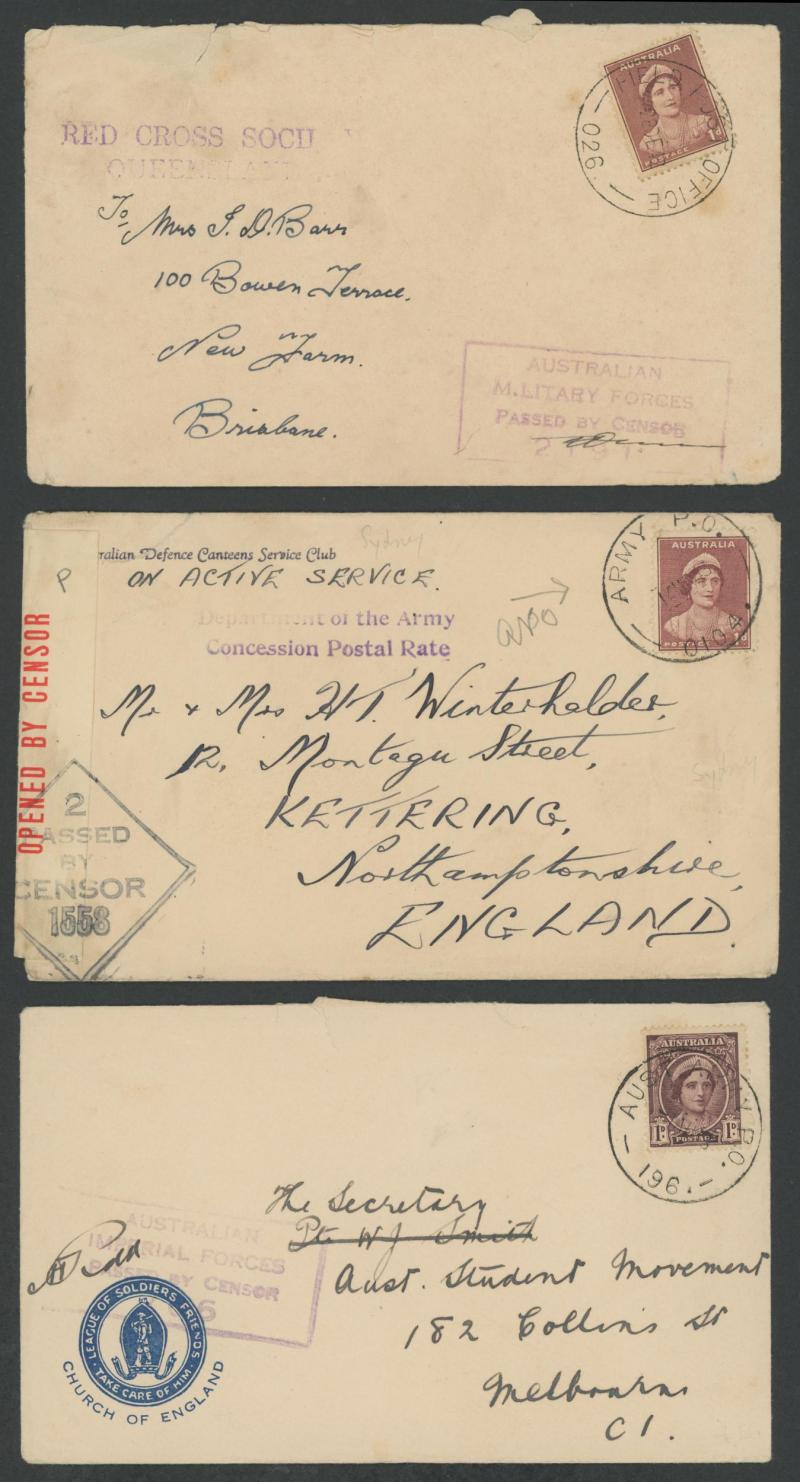 RED CROSS
QUEENSLAND
AUSTRALIA
1d
POSTAGE
FIELD POST OFFICE
026
To/ Mrs J. D. Barr
100 Bowen Terrace.
New Farm.
Brisbane.
AUSTRALIAN
M.LITARY FORCES
PASSED BY CENSOR
ralian Defence Canteens Service Club
Sydney
P
ON ACTIVE SERVICE.
Department of the Army
Concession Postal Rate
APO
ARMY P.O.
0104.
AUSTRALIA
1d
POSTAGE
OPENED BY CENSOR
Mr & Mrs H.T. Winterhalder,
12, Montagu Street,
Sydney
KETTERING,
Northamptonshire,
ENGLAND.
2
PASSED
BY
CENSOR
1558
AUSTRALIA
1D POSTAGE 1D
AUST ARMY P.O.
196.
The Secretary
Pte W J Smith
Aust. Student Movement
182 Collins St
Melbourne
C1.
AUSTRALIAN
IMPERIAL FORCES
PASSED BY CENSOR
6
LEAGUE OF SOLDIERS FRIENDS
TAKE CARE OF HIM
CHURCH OF ENGLAND